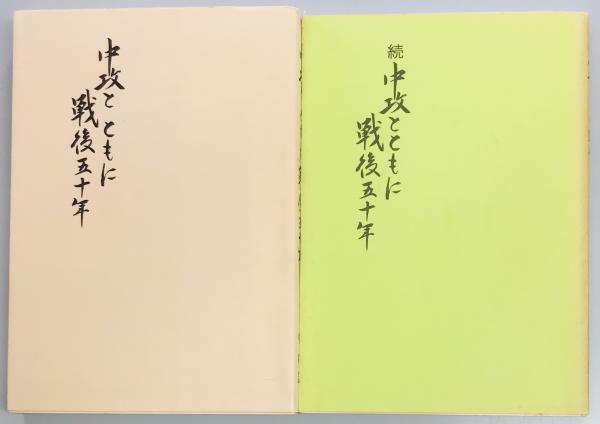 中攻とともに
戦後五十年
続
中攻とともに
戦後五十年